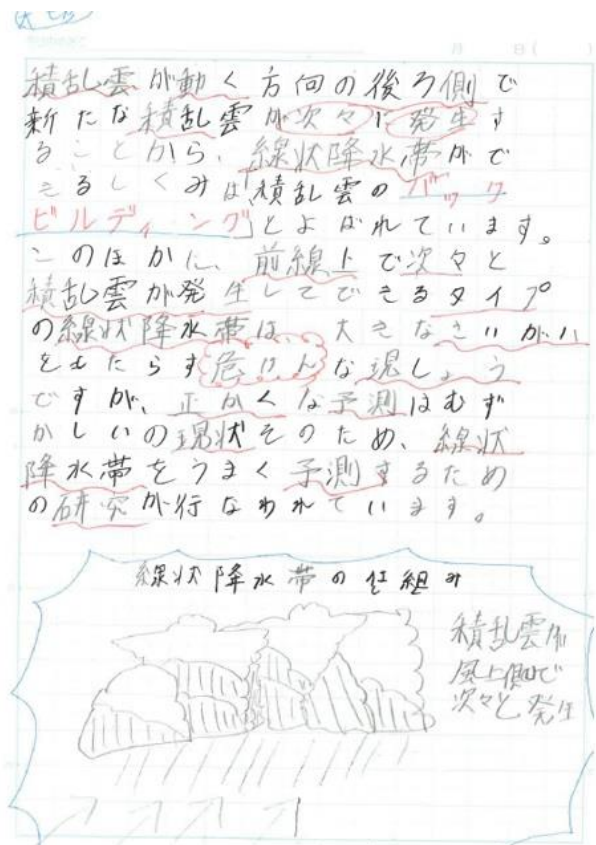 月 日( )
積乱雲が動く方向の後ろ側で
新たな積乱雲が次々に発生す
ることから、線状降水帯がで
きるしくみは「積乱雲のバック
ビルディング」とよばれています。
このほかに、前線上で次々と
積乱雲が発生してできるタイプ
の線状降水帯は 大きなさいがい
をもたらす危けんな現しょう
ですが、正かくな予測はむず
かしいの現状そのため、線状
降水帯をうまく予測するため
の研究が行なわれています。
線状降水帯の仕組み
積乱雲が
風上側で
次々と発生